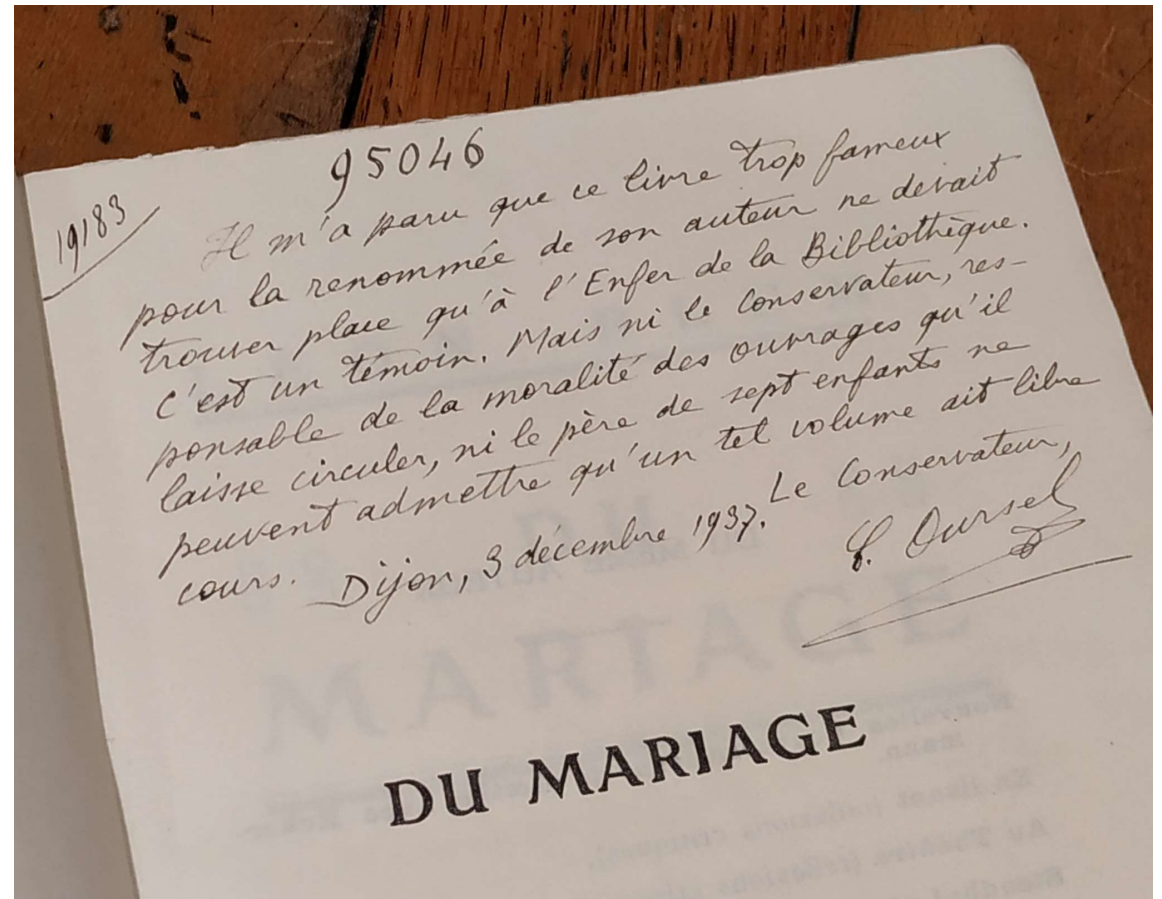 95046
19183
Il m'a paru que ce livre trop fameux
pour la renommée de son auteur ne devait
trouver place qu'à l'Enfer de la Bibliothèque.
C'est un témoin. Mais ni le Conservateur, res-
ponsable de la moralité des ouvrages qu'il
laisse circuler, ni le père de sept enfants ne
peuvent admettre qu'un tel volume ait libre
cours. Dijon, 3 décembre 1937. Le Conservateur,
Oursel
DU MARIAGE